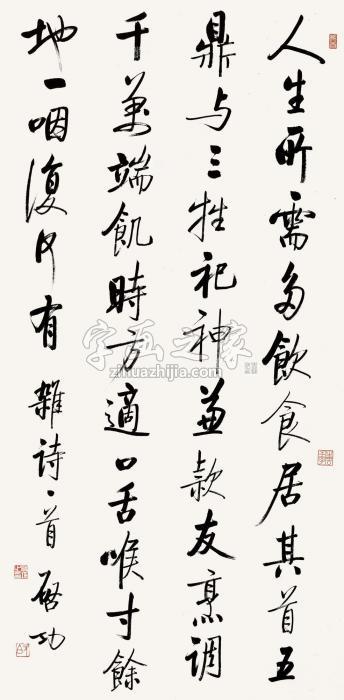 人生所需多飲食居其首五
鼎与三牲祀神兼款友烹调
千萬端飢時方適口舌喉寸餘
地一咽復何有 雜诗一首 啓功
字画之家
zihuazhijia.com